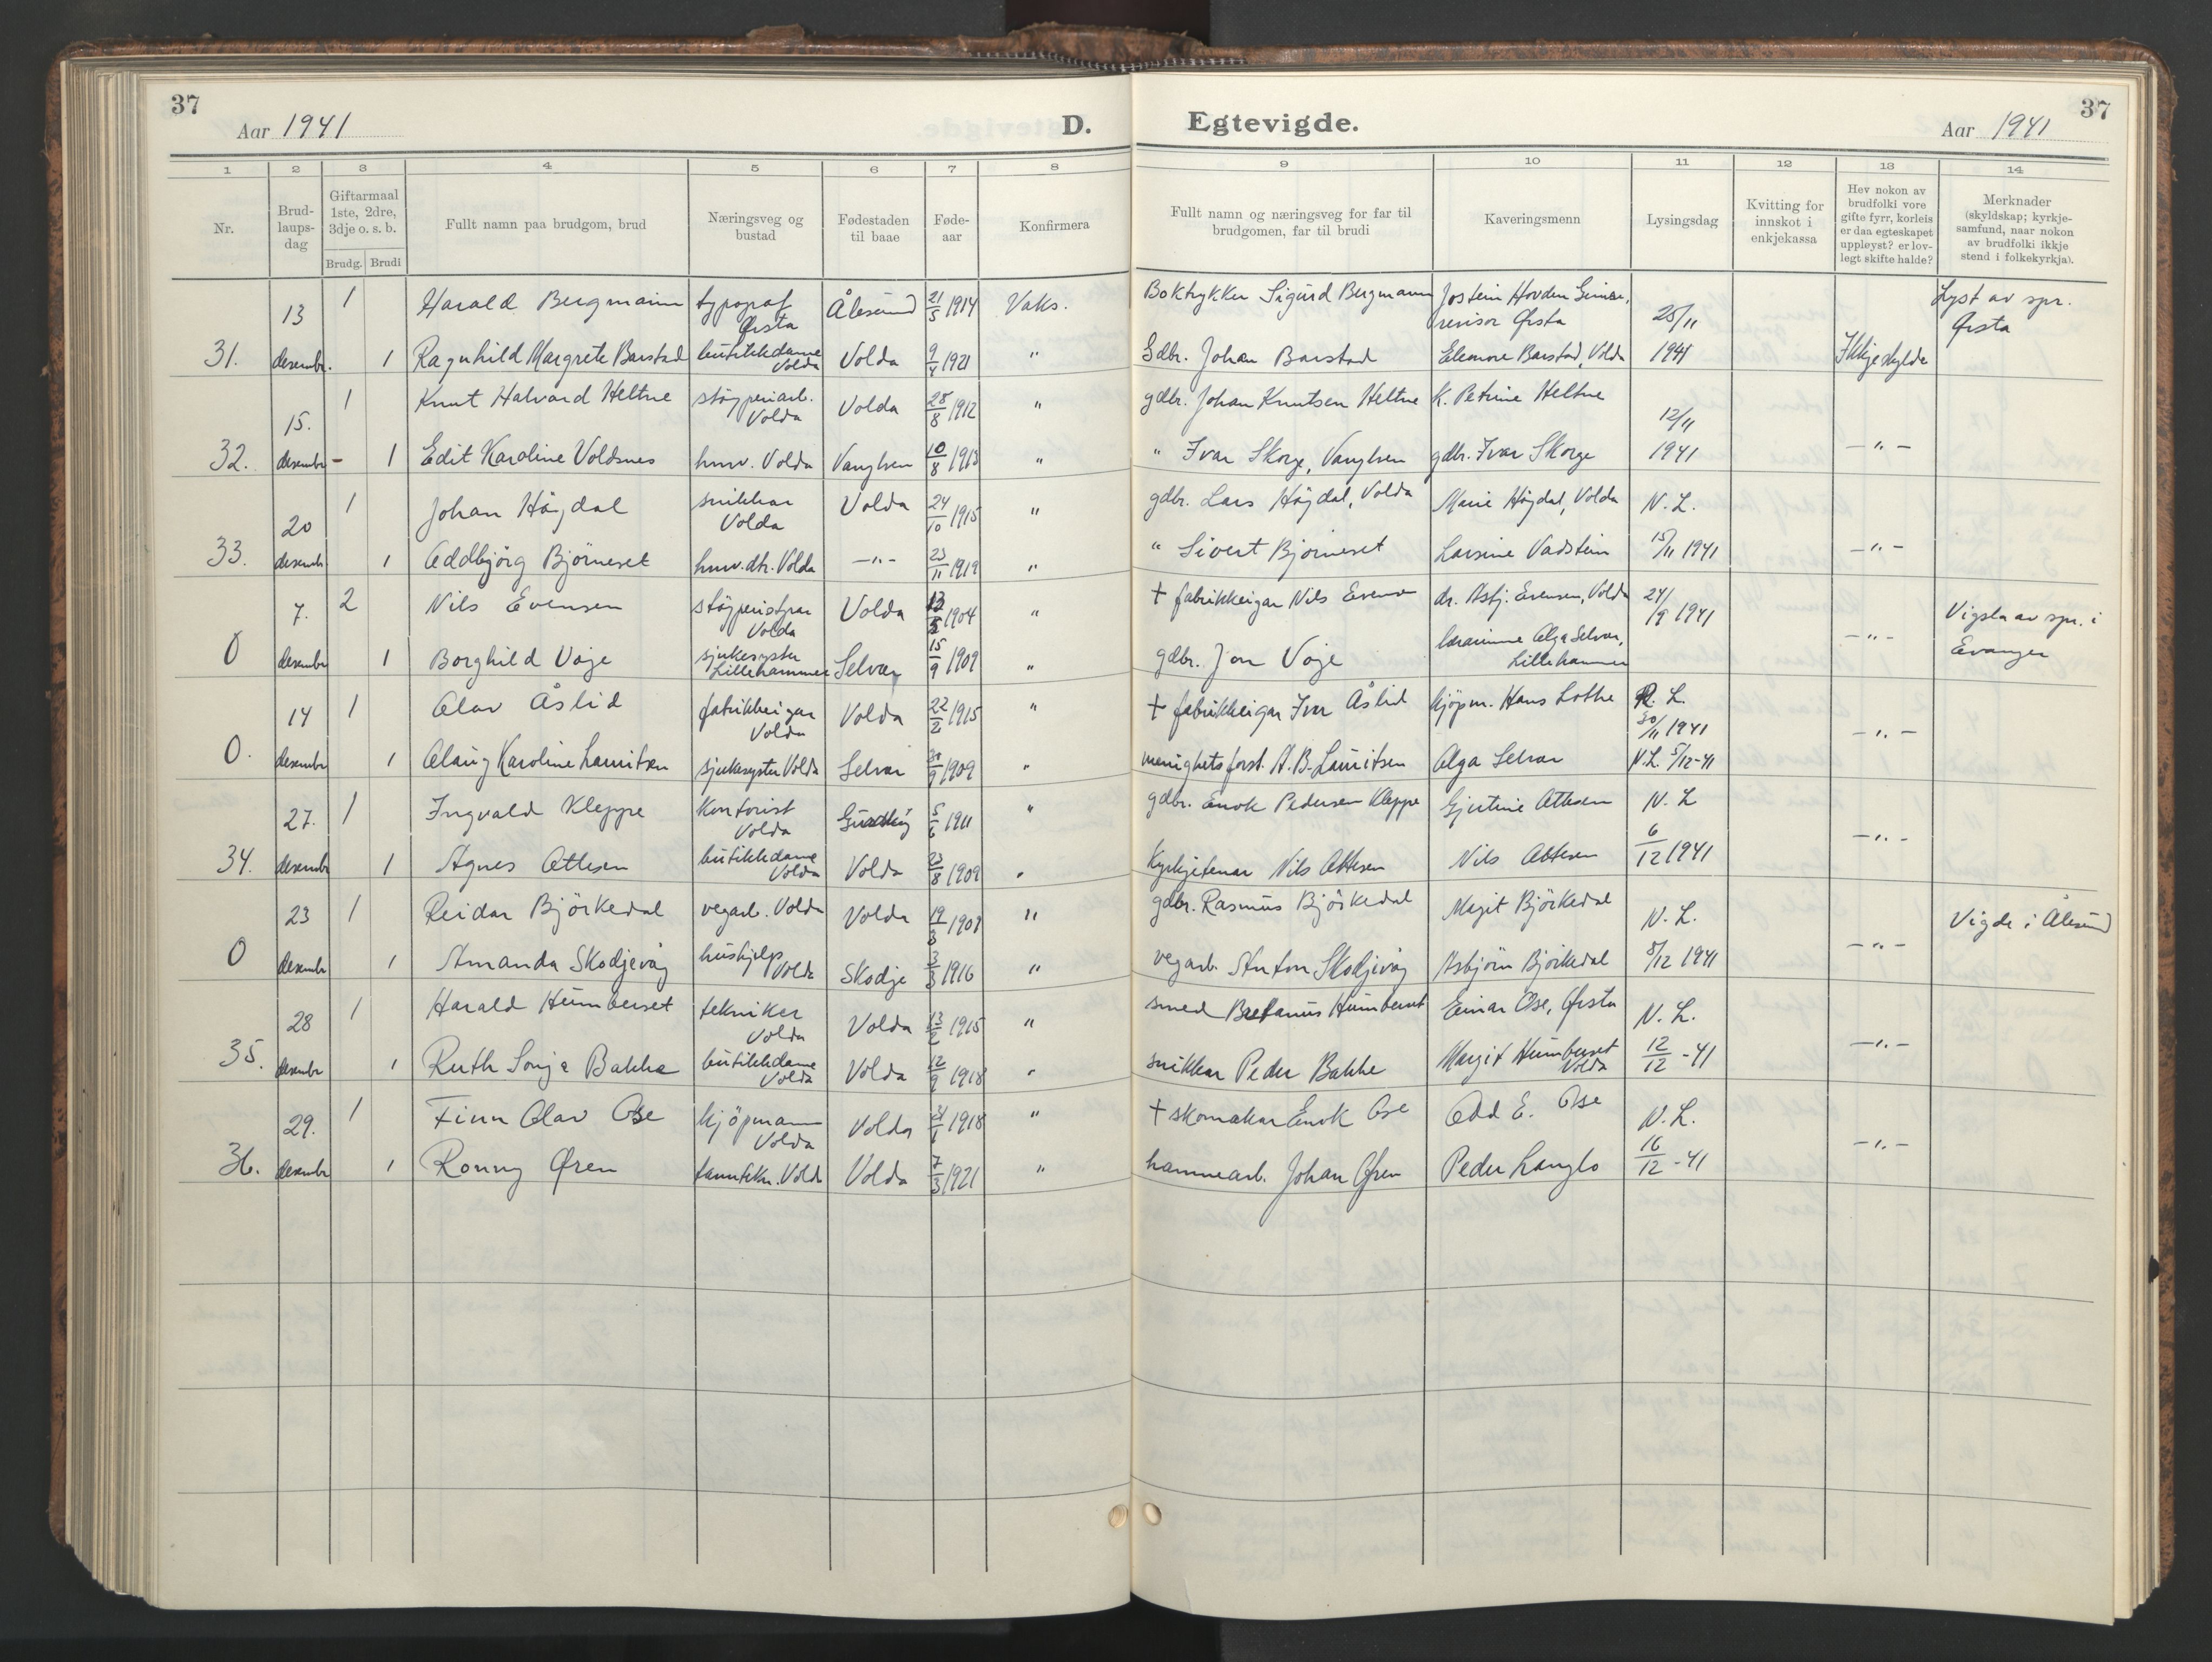 37
Aar 1941
D.
Egtevigde.
37
Aar 1941
1 2 3 4 5 6 7 8 9 10 11 12 13 14
Nr.
Brud-
laups-
dag
Giftarmaal
1ste, 2dre,
3dje o. s. b.
Brudg. Brudi
Fullt namn paa brudgom, brud
Næringsveg og
bustad
Fødestaden
til baae
Føde-
aar
Konfirmera
Fullt namn og næringsveg for far til
brudgomen, far til brudi
Kaveringsmenn
Lysingsdag
Kvitting for
innskot i
enkjekassa
Hev nokon av
brudfolki vore
gifte fyrr, korleis
er daa egteskapet
uppløyst? er lov-
legt skifte halde?
Merknader
(skyldskap; kyrkje-
samfund, naar nokon
av brudfolki ikkje
stend i folkekyrkja).
13 1 Harald Bergmann typograf Ørsta Ålesund 21/5 1914 Vaks. Boktrykker Sigurd Bergmann Jostein Hovden revisor Ørsta 25/11 Lyst av spr. Ørsta
31. desembr. 1 Ragnhild Margrete Barstad butikkdame Volda Volda 9/4 1921 " Gdbr. Johan Barstad Elenore Barstad, Volda 1941 Ikkje skylde
15. 1 Knut Halvard Heltne støyperiarb. Volda Volda 28/8 1912 " gdbr. Johan Knutsen Heltne K. Petrine Heltne 12/11
32. desembr - 1 Edit Karoline Voldsnes husv. Volda Vanylven 10/8 1913 " " Ivar Skorge, Vanylven gdbr. Ivar Skorge 1941 -"-
20 1 Johan Högdal snikkar Volda Volda 24/10 1915 " gdbr. Lars Högdal, Volda Marie Högdal, Volda N. L.
33. desembr 1 Oddbjörg Björneset husv. dtr. Volda -"- 23/11 1919 " " Sivert Björneset Larsine Vadstein 15/11 1941 -"-
7. 2 Nils Evensen Volda Volda 1904 " + fabrikkeigar Nils Evensen dr. Asbj. Evensen, Volda 24/9 1941 Vigsla av spr. i Evanger
0 desembr 1 Borghild Voje sjukesyster Lillehammer Selvær 15/9 1909 " gdbr. Jon Voje lærarinne Olga Selvær, Lillehammer -"-
14 1 Olav Åslid fabrikkeigar Volda Volda 22/2 1915 " + fabrikkeigar Ivar Åslid kjöpm. Hans Lothe L. 30/11 1941
0. desembr 1 Olaug Karoline Lauritsen sjukesyster Volda Selvær 1909 " menighetsforst. A. B. Lauritsen Olga Selvær N. L. 5/12-41 -"-
27. 1 Ingvald Kleppe Kontorist Volda Gurskøy 5/6 1911 " gdbr. Enok Pedersen Kleppe Gjertine Ottesen N. L
34. desembr 1 Agnes Ottesen butikkdame Volda Volda 23/8 1909 " Kyrkjetenar Nils Ottesen Nils Ottesen 6/12 1941 -"-
23 1 Reidar Björkedal vegarb. Volda Volda 19/3 1908 " gdbr. Rasmus Björkedal Magit Björkedal N. L. Vigde i Ålesund
0 desembr 1 Amanda Skodjevåg hushjelp Volda Skodje 3/3 1916 " vegarb. Anton Skodjevåg Asbjörn Björkedal 8/12 1941 -"-
28 1 Harald Humberset tekniker Volda Volda 13/2 1915 " smed Humberset Einar Ose, Ørsta N. L.
35. desembr 1 Ruth Sonja Bakke butikkdame Volda Volda 12/9 1918 " snikkar Peder Bakke Margit Humberset Volda 12/12 -41 -"-
29. 1 Finn Olav Ose kjöpmann Volda Volda 1918 " + skomakar Enok Ose Odd E. Ose N. L.
36. desembr 1 Ronny Øren tanntekn. Volda Volda 7/3 1921 " hamnearb. Johan Øren Peder Langlo 16/12 -41 -"-